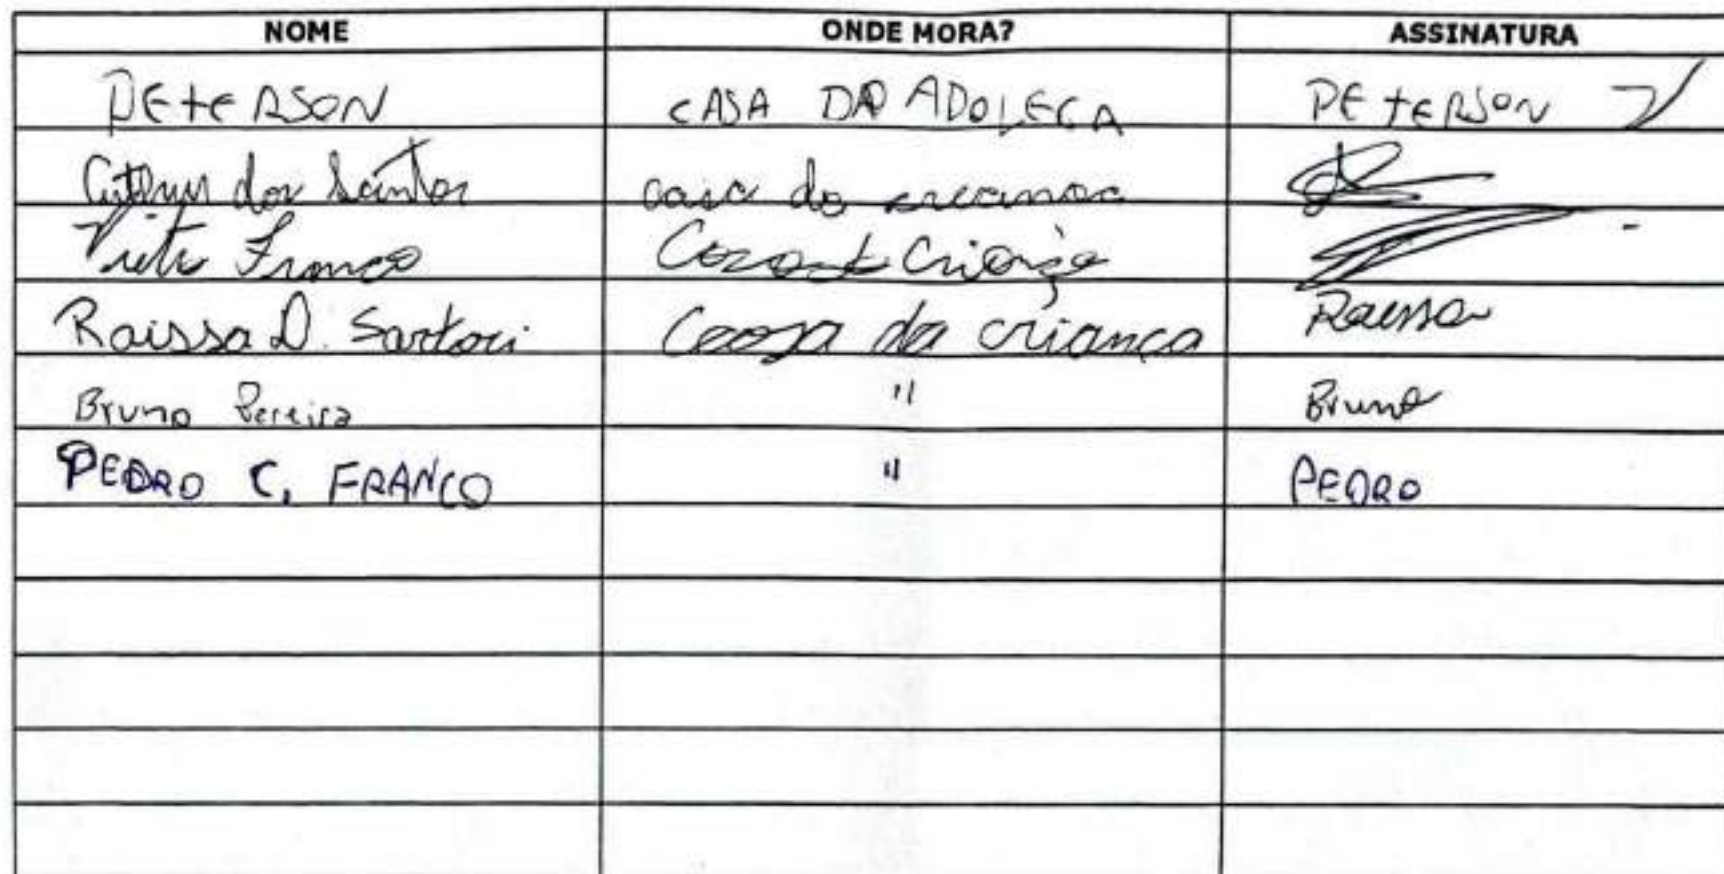 NOME ONDE MORA? ASSINATURA
PETERSON CASA DA ADOLECA PETERSON
dos Santos casa da
Franco Criança
Raissa D. Sartori Casa da criança Raissa
Bruno Pereira " Bruno
PEDRO C. FRANCO " PEDRO